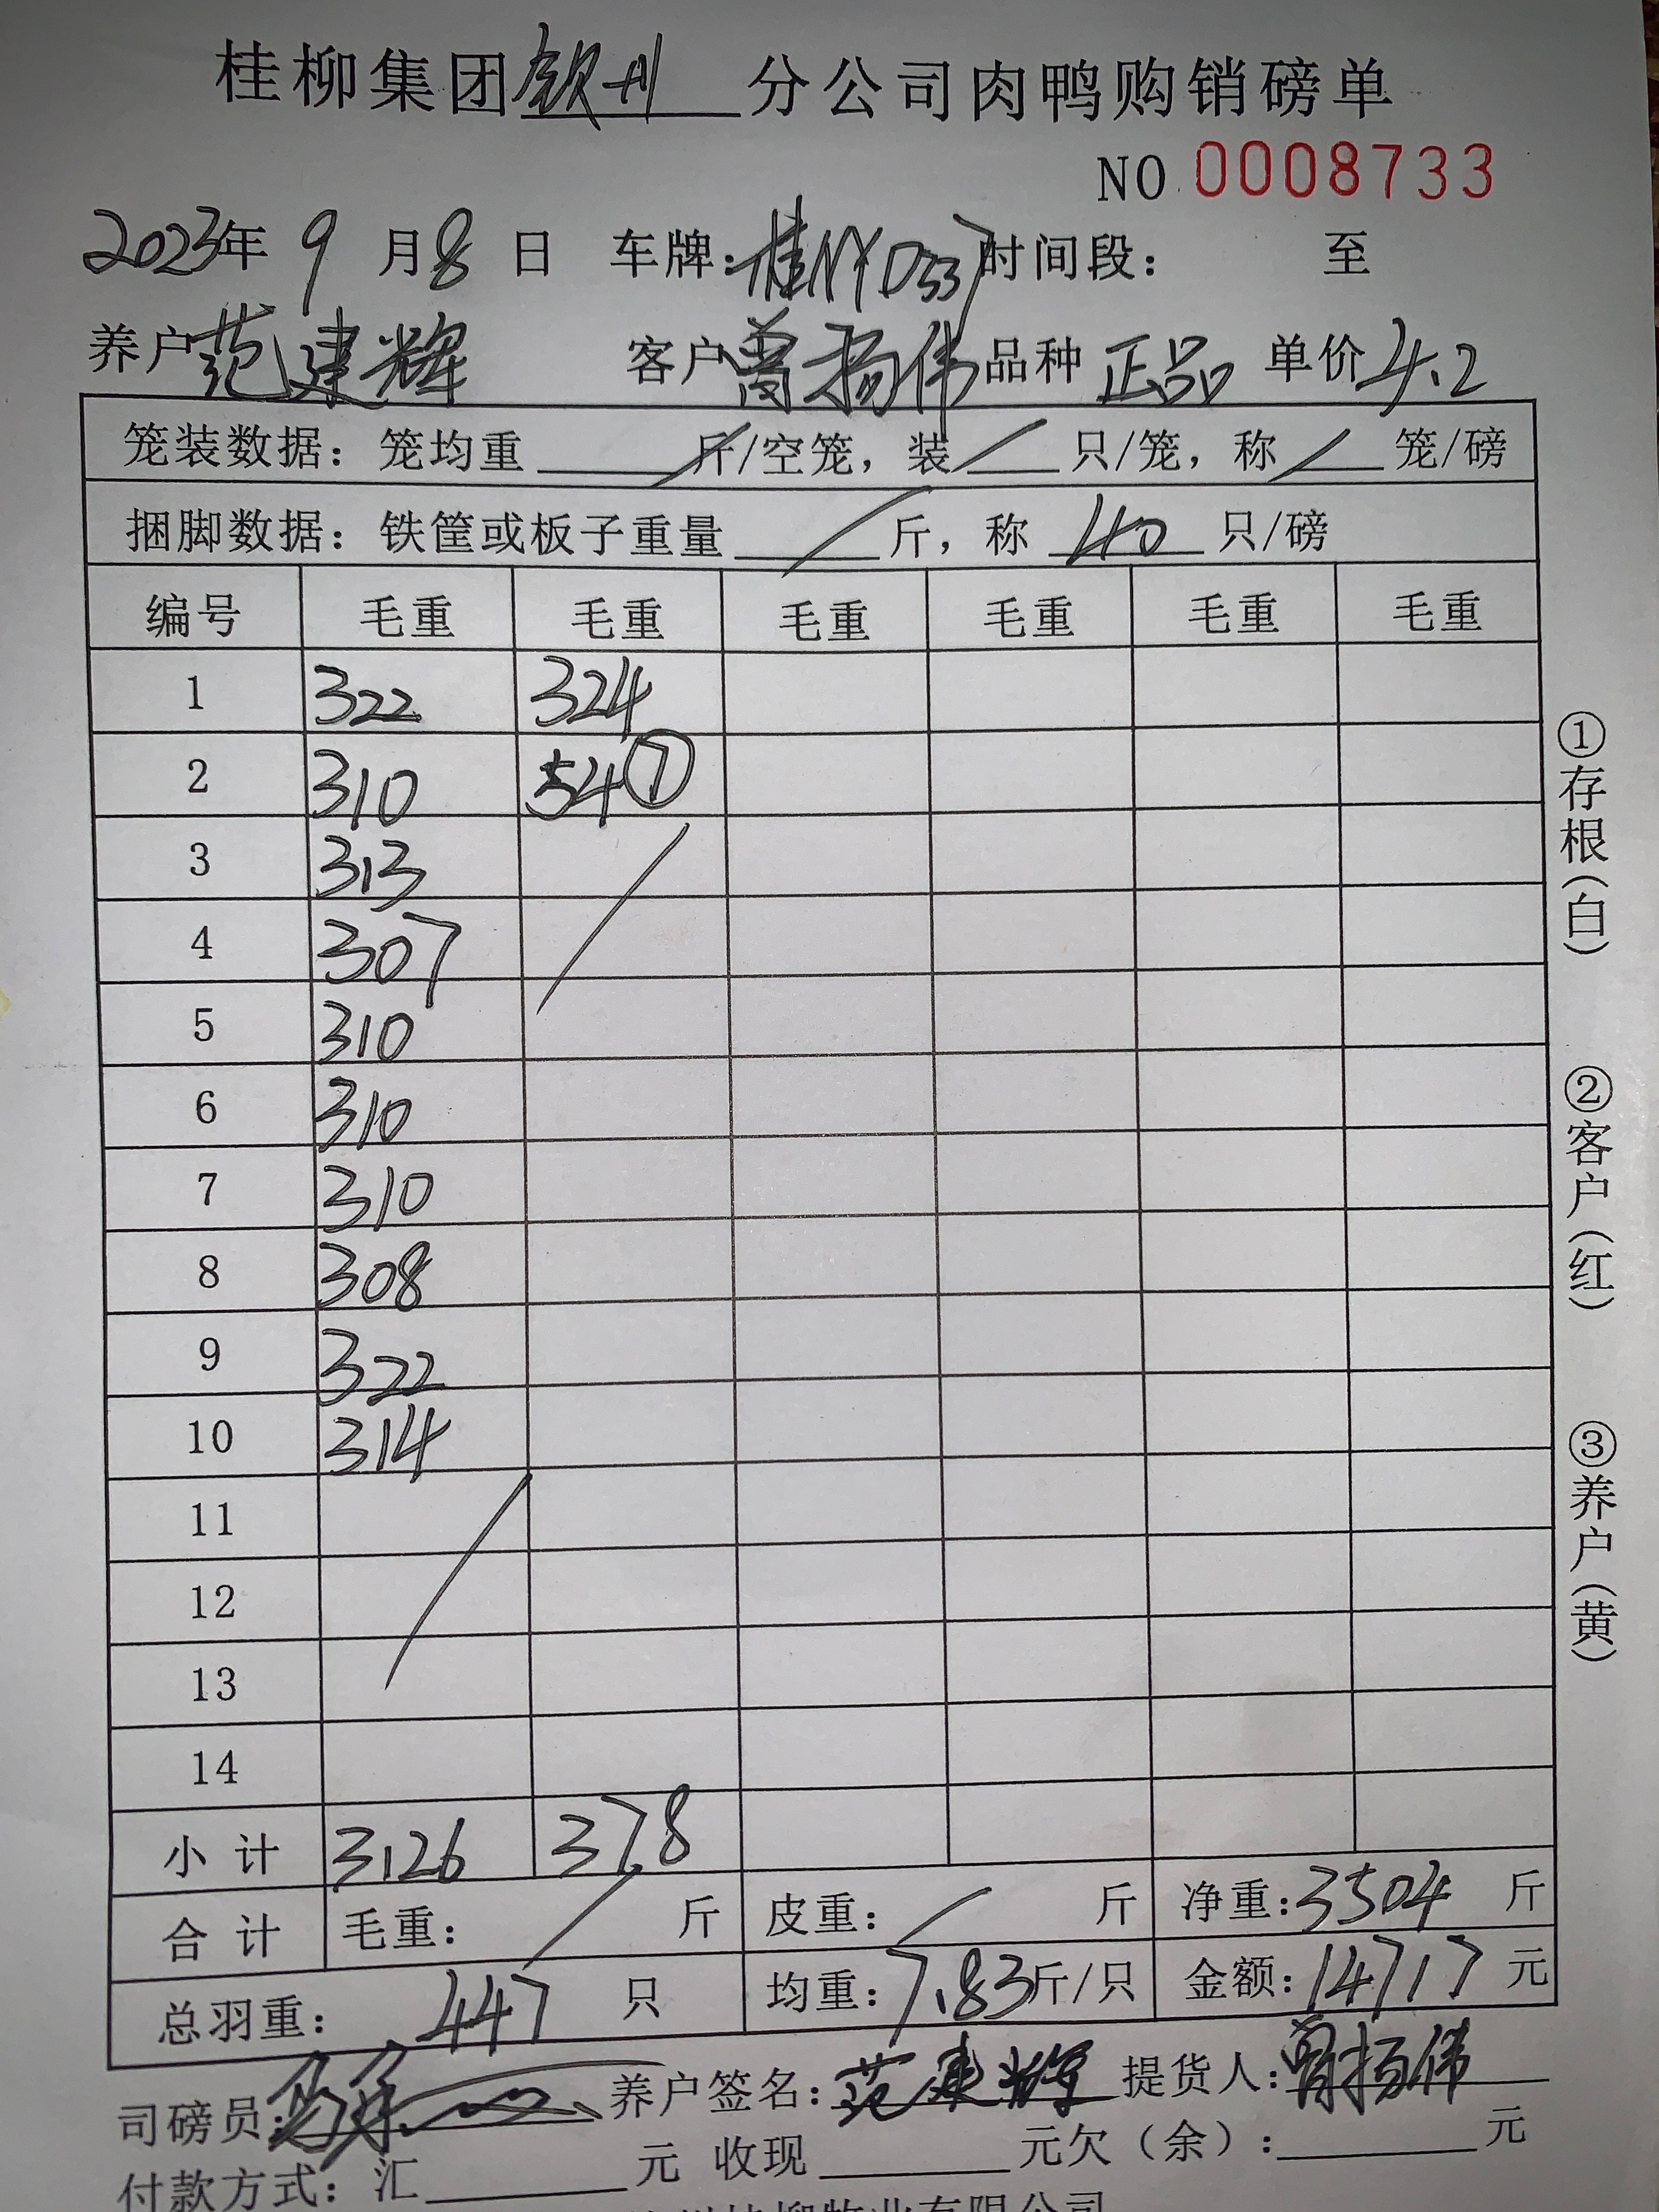 桂柳集团钦州分公司肉鸭购销磅单
NO 0008733
2023年 9 月 8 日 车牌：桂NYD537 时间段： 至
养户 范建辉 客户 曾扬伟 品种 正品 单价 4.2
笼装数据：笼均重 / 斤/空笼，装 / 只/笼，称 / 笼/磅
捆脚数据：铁筐或板子重量 / 斤，称 40 只/磅
编号 毛重 毛重 毛重 毛重 毛重 毛重
1 322 324
2 310 54⑦
3 313
4 307
5 310
6 310
7 310
8 308
9 322
10 314
11
12
13
14
小计 3126 378
合计 毛重： / 斤 皮重： / 斤 净重：3504 斤
总羽重： 447 只 均重：7.83斤/只 金额：14717 元
司磅员： 养户签名：范建辉 提货人：曾扬伟
付款方式：汇 元 收现 元欠（余）： 元
①存根（白）
②客户（红）
③养户（黄）